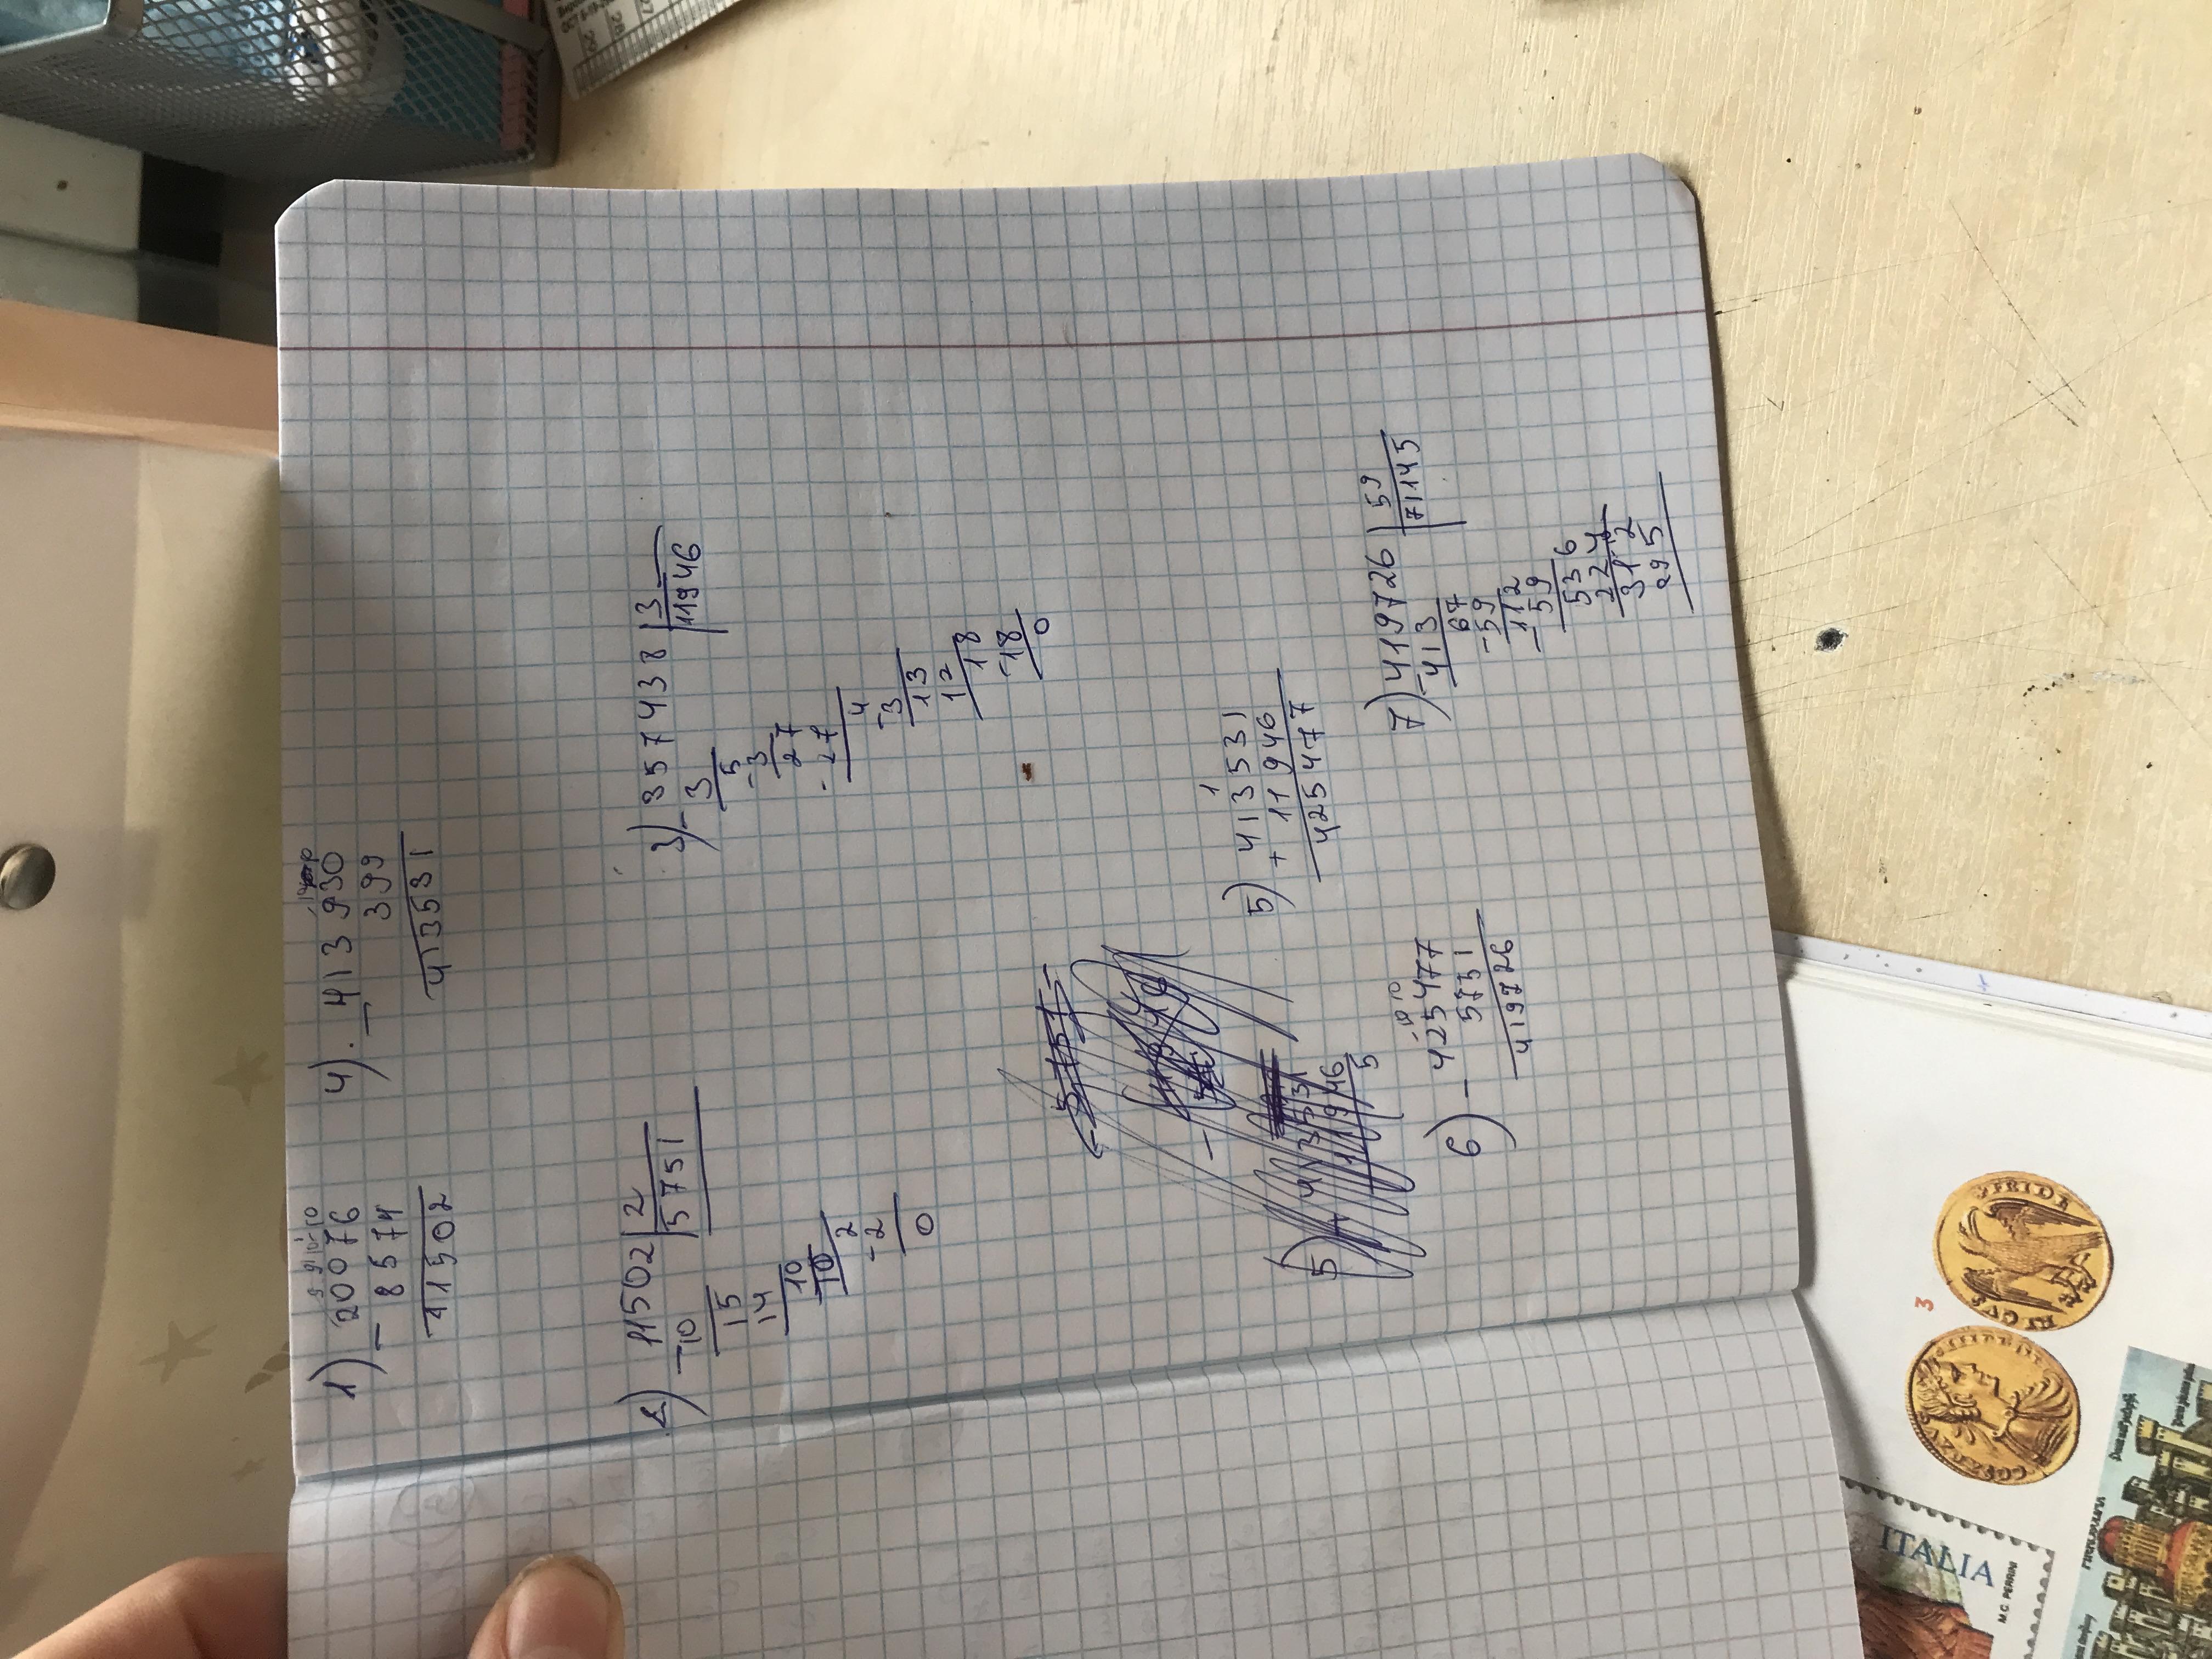 1) 9 9 10 10
200 76
- 8 5 74
1 1 5 0 2
4) - 413 930
399
413531
2) 11502 | 2
- 10 | 5751
15
14
10
10
2
- 2
0
3) - 3 5 7 4 3 8 | 3
3 | 11946
5
- 3
2 7
- 27
4
- 3
13
12
18
- 18
0
5)
5) 1
4 1 3 5 3 1
+ 1 1 9 4 6
4 2 5 4 7 7
6) 10 10
- 425477
5751
419726
7) 419726 | 59
- 413 | 71145
67
- 59
- 112
59
536
224
312
295
3
ITALIA
M.C. PERRINI